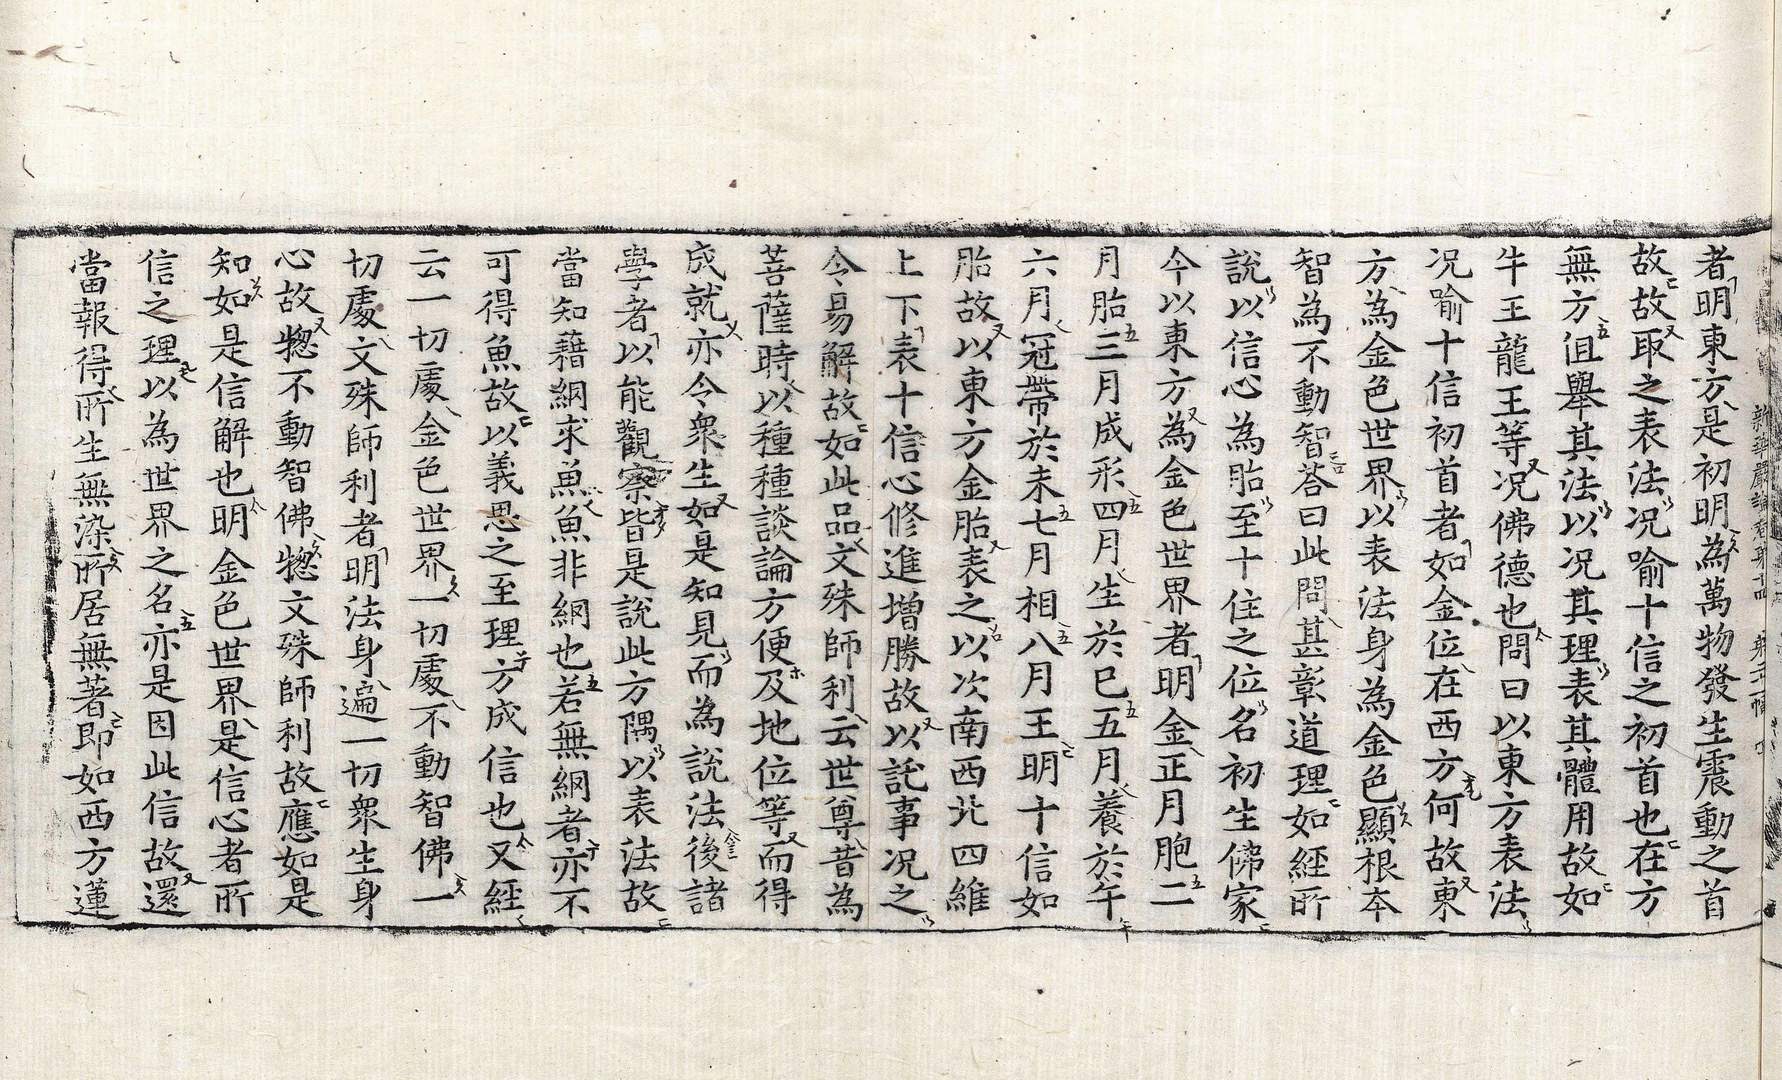 者明東方是初明為萬物發生震動之首
故故取之表法况喻十信之初首也在方
無方但舉其法以况其理表其體用故如
牛王龍王等况佛德也問曰以東方表法
况喻十信初首者如金位在西方何故東
方為金色世界以表法身為金色顯根本
智為不動智荅曰此問甚彰道理如經所
說以信心為胎至十住之位名初生佛家
今以東方為金色世界者明金正月胞二
月胎三月成形四月生於巳五月養於午
六月冠帶於未七月相八月王明十信如
胎故以東方金胎表之以次南西北四維
上下表十信心修進增勝故以託事况之
令易解故如此品文殊師利云世尊昔為
菩薩時以種種談論方便及地位等而得
成就亦令衆生如是知見而為說法後諸
學者以能觀察皆是說此方隅以表法故
當知藉網求魚魚非網也若無網者亦不
可得魚故以義思之至理方成信也又經
云一切處金色世界一切處不動智佛一
切處文殊師利者明法身遍一切衆生身
心故揔不動智佛揔文殊師利故應如是
知如是信解也明金色世界是信心者所
信之理以為世界之名亦是因此信故還
當報得所生無染所居無著即如西方蓮